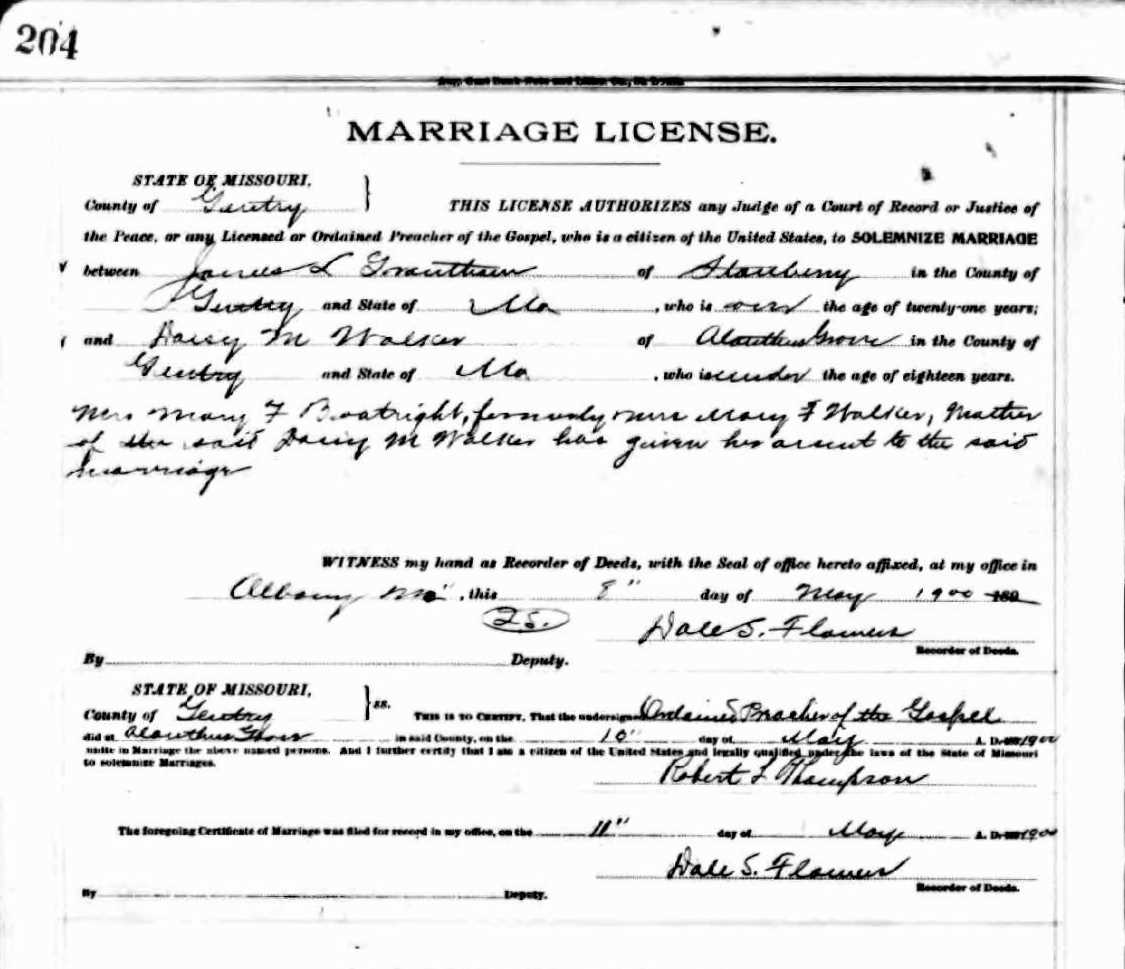 204
MARRIAGE LICENSE.
STATE OF MISSOURI,
County of Gentry } THIS LICENSE AUTHORIZES any Judge of a Court of Record or Justice of
the Peace, or any Licensed or Ordained Preacher of the Gospel, who is a citizen of the United States, to SOLEMNIZE MARRIAGE
between James L Grantham of Stanberry in the County of
Gentry and State of Mo , who is over the age of twenty-one years;
and Daisy M Walker of Alanthus Grove in the County of
Gentry and State of Mo , who is under the age of eighteen years.
Mrs Mary F Boatright, formerly Mrs Mary F Walker, Mother
of the said Daisy M Walker has given her assent to the said
marriage
WITNESS my hand as Recorder of Deeds, with the Seal of office hereto affixed, at my office in
Albany Mo , this 8" day of May 1900 189
L.S. Dale S. Flowers
Recorder of Deeds.
By Deputy.
STATE OF MISSOURI,
County of Gentry } ss. THIS IS TO CERTIFY, That the undersigned Ordained Preacher of the Gospel
did at Alanthus Grove in said County, on the 10" day of May A. D. 1900
unite in Marriage the above named persons. And I further certify that I am a citizen of the United States and legally qualified under the laws of the State of Missouri
to solemnize Marriages.
Robert L Thompson
The foregoing Certificate of Marriage was filed for record in my office, on the 11" day of May A. D. 1900
Dale S. Flowers
Recorder of Deeds.
By Deputy.